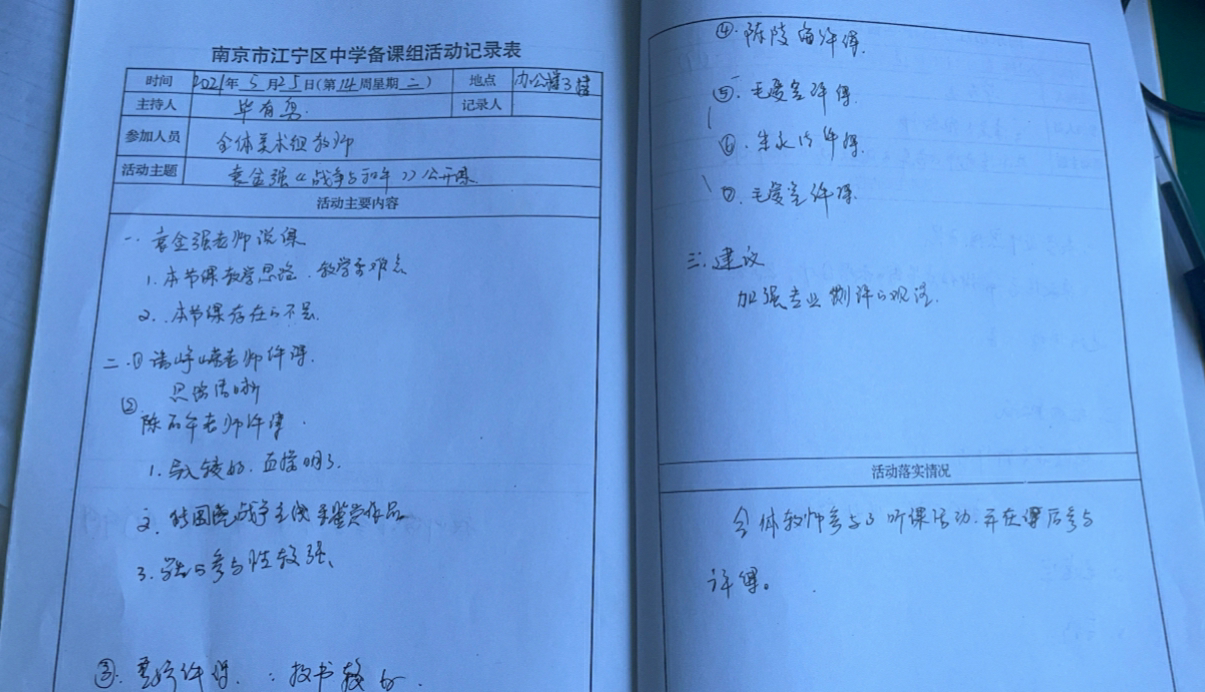 南京市江宁区中学备课组活动记录表
时间 2021年5月25日(第14周星期二) 地点 办公楼3楼
主持人 毕有勇 记录人
参加人员 全体美术组教师
活动主题 袁金强《战争与和平》公开课
活动主要内容
一. 袁金强老师说课
1. 本节课教学思路、教学重难点
2. 本节课存在的不足.
二. ① 老师评课.
思路清晰
② 陈 老师评课.
1. 导入较好. 直接明了.
2. 战争主线 鉴赏作品
3. 学生的参与性较强.
③. 评课. : 板书较好.
④. 陈陵 评课.
⑤. 毛爱 评课.
⑥. 朱永 评课.
⑦. 毛爱 评课.
三. 建议
加强专业 的
活动落实情况
全体教师参与了听课活动. 并在课后参与
评课。